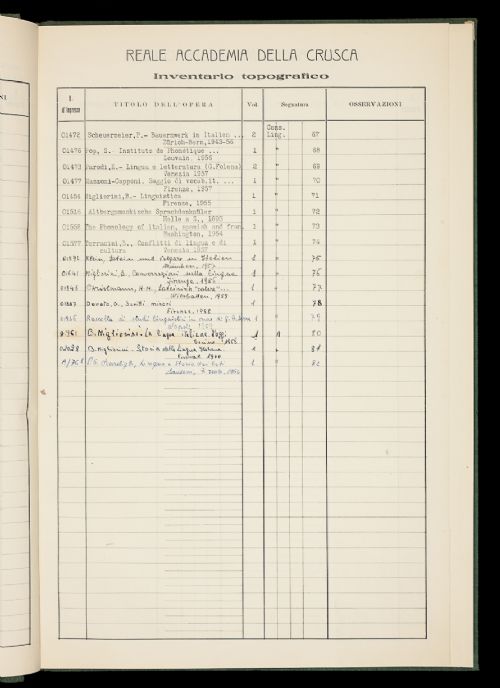 NI
REALE ACCADEMIA DELLA CRUSCA
Inventario topografico
I.
d'ingresso
TITOLO DELL'OPERA
Vol.
Segnatura
OSSERVAZIONI
Cons.
01472 Scheuermeier,P.- Bauernwerk in Italien ... 2 Ling. 67
Zürich-Bern,1943-56
01476 Pop, S.- Instituts de Phonétique ... 1 " 68
Louvain, 1956
01473 Parodi,E.- Lingua e letteratura (G.Folena) 2 " 69
Venezia 1957
01477 Manzoni-Capponi. Saggio di vocab.it. ... 1 " 70
Firenze, 1957
Migliorini,B.- Linguistica 1 " 71
Firenze, 1955
01516 Altbergamaskische Sprachdenkmäler 1 " 72
Halle a S., 1893
01558 The Phonology of italian, spanish and fren. 1 " 73
Washington, 1954
01577 Terracini,B., Conflitti di lingua e di 1 " 74
cultura Venezia 1957
Klein, Latein und Volgare in Italien 1 " 75
München, 1957
01641 Migliorini, B. Conversazioni sulla lingua 1 " 76
Firenze, 1956
Christmann, H.H. Lateinisch "calere"... 1 " 77
Wiesbaden, 1958
Devoto, G., Scritti minori 1 78
Firenze, 1958
Raccolta di studi linguistici in onore di G. D. 1 " 79
B. Migliorini La lingua italiana 1 A 80
1959
B. Migliorini. Storia della lingua italiana 1 " 81
Firenze 1960
1 " 82